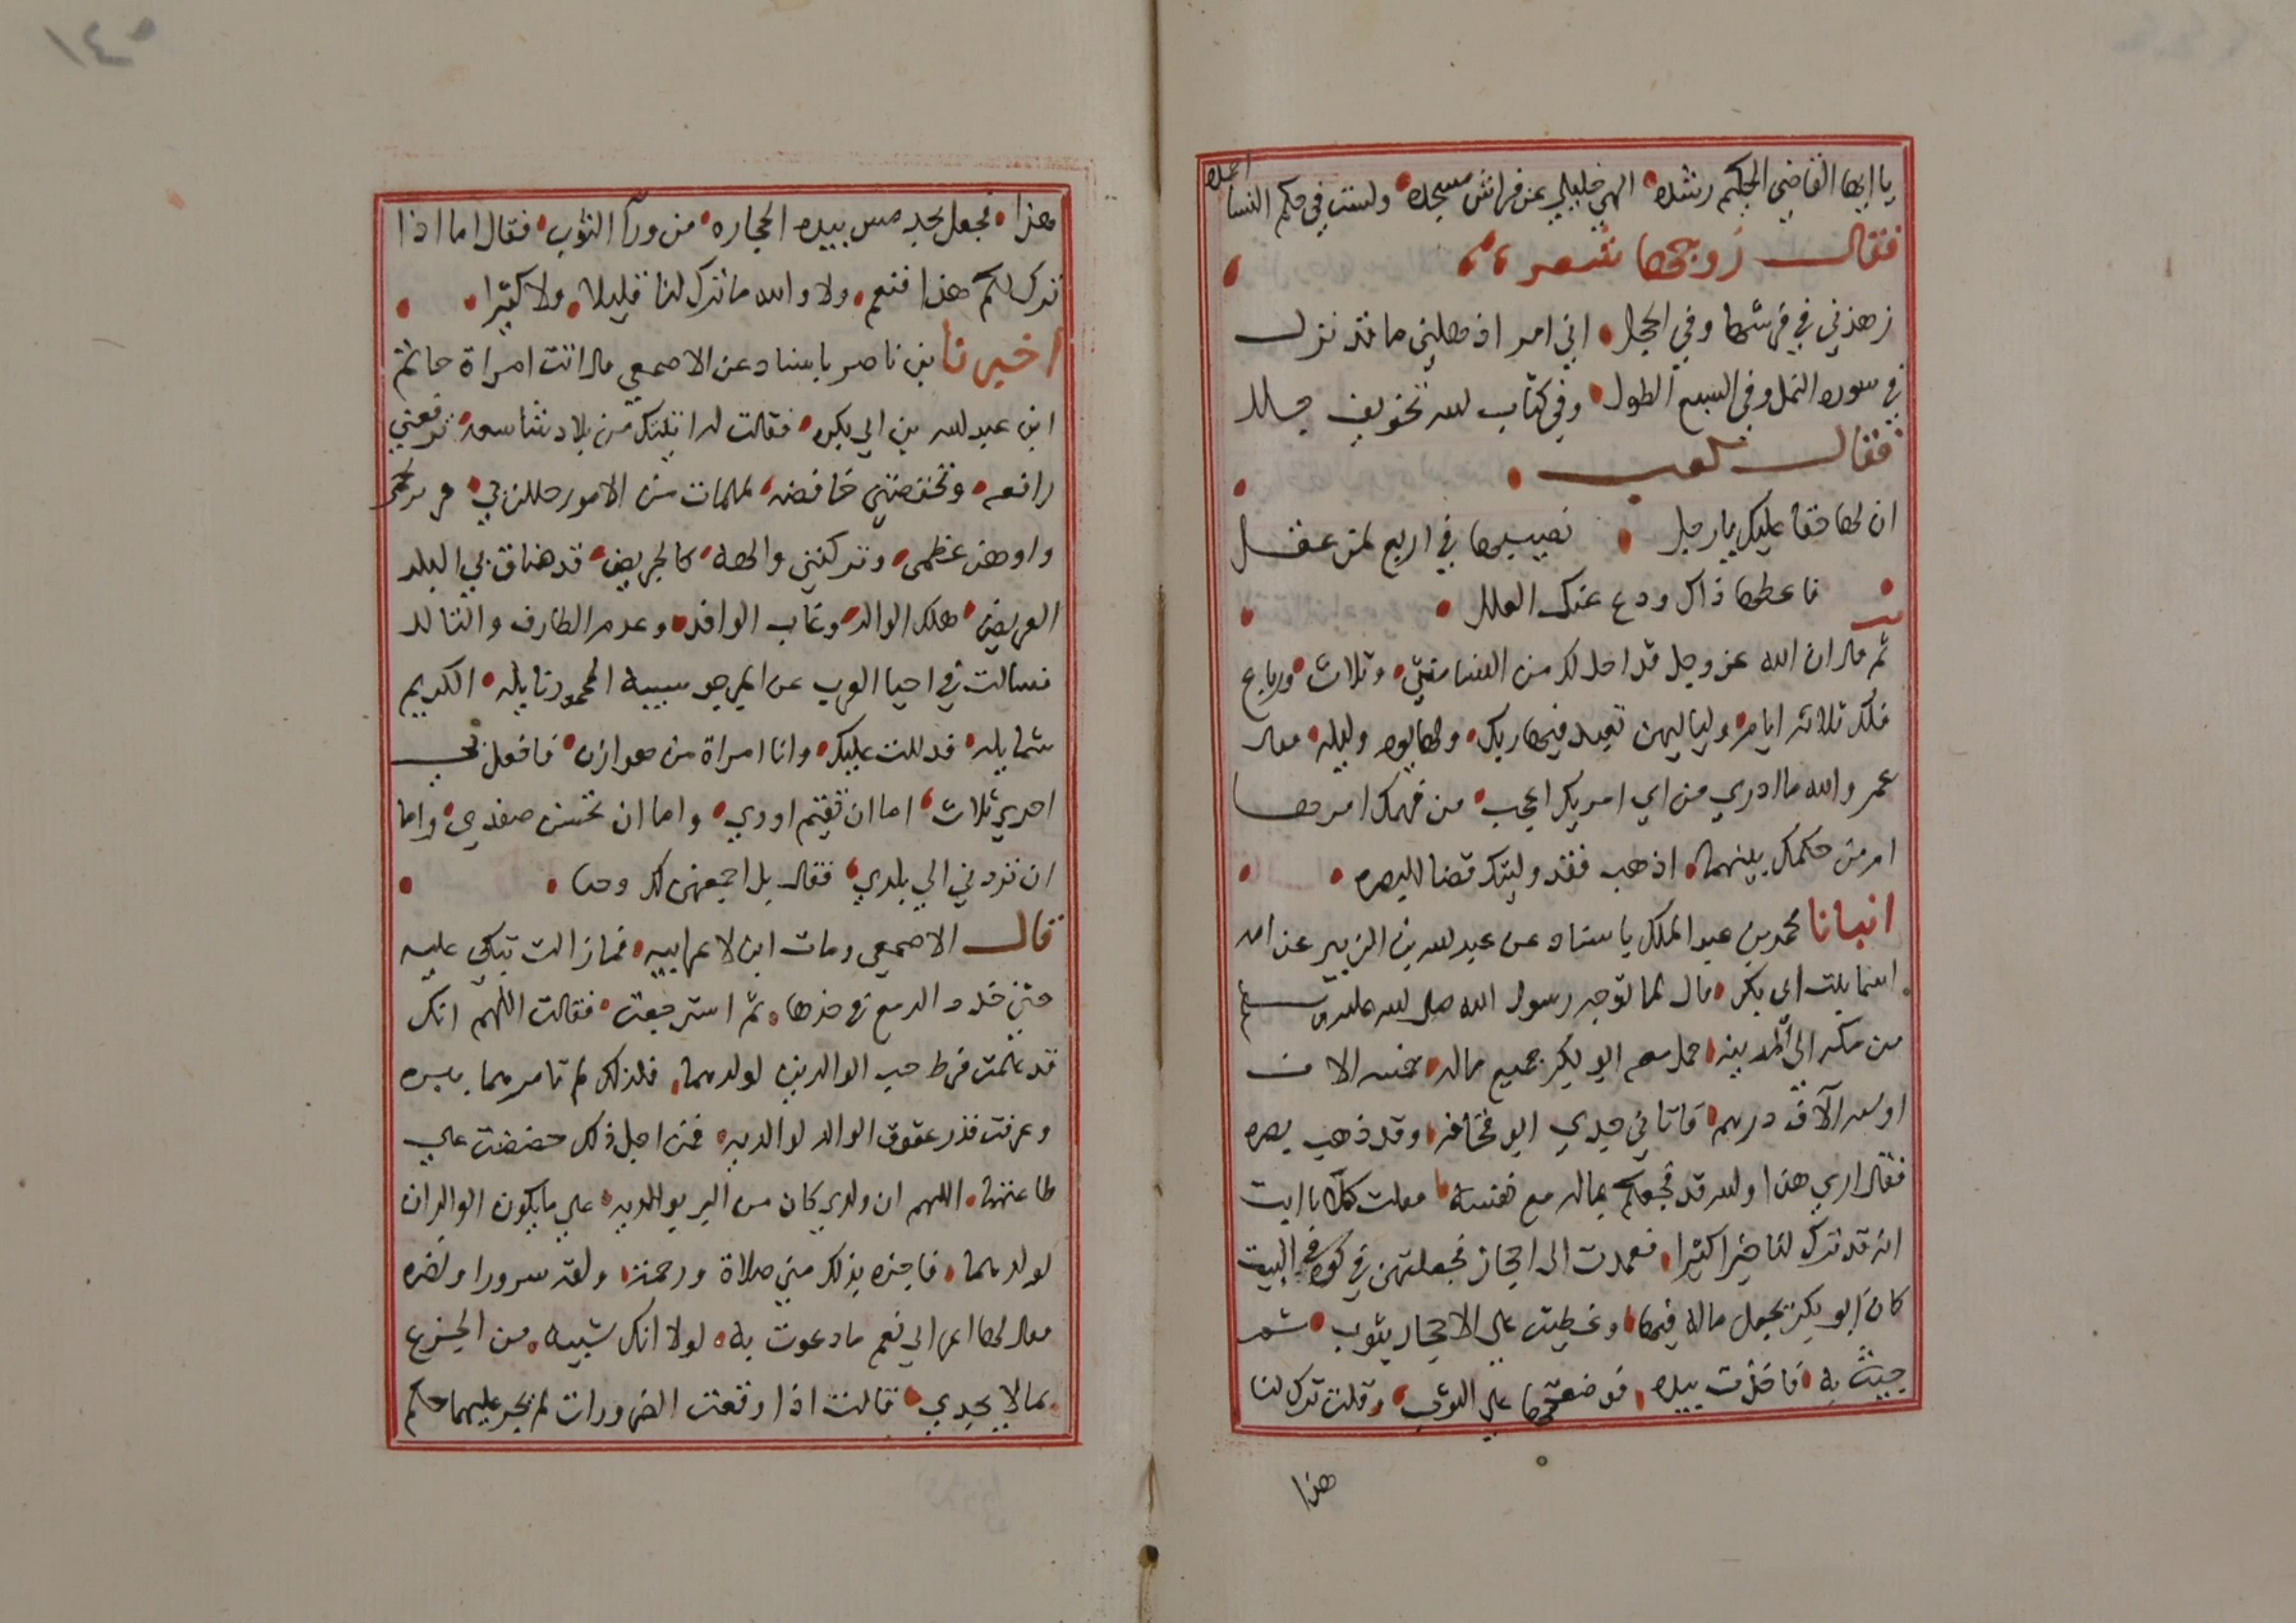 يا ايها القاضي الحكيم رشده الهي خليلي عن فراش مسجده ولست في حكم النسا احمده
فقالـ زوجها شعر
زهدني في فرشها وفي الحجل اني امر اذهلني ما قد نزل
في سورة النمل وفي السبع الطول وفي كتاب الله تخويف جلل
فقالـ كعب
ان لها حقا عليك يا رجل نصيبها في اربع لمن عقل
فاعطها ذاك ودع عنك العلل
ثم قال ان الله عز وجل قد احل لك من النسا مثنى وثلاث ورباع
فلك ثلاثة ايام ولياليهن تعبد فيها ربك ولها يوم وليلة فقال
عمر والله ما ادري من اي امريك اعجب من فهمك امرهما
ام من حكمك بينهما اذهب فقد وليتك قضا البصره
انبانا محمد بن عبد الملك باسناد عن عبد الله بن الزبير عن امه
اسما بنت ابي بكر قال لما توجه رسول الله صلى الله عليه وسلم
من مكه الى المدينه حمل معه ابو بكر جميع ماله خمسة الاف
او ستة الآف درهم فاتاني جدي ابو قحافه وقد ذهب بصره
فقال اري هذا والله قد فجعكم بماله مع نفسه فقلت كلا يا ابت
انه قد ترك لنا خيرا كثيرا فعمدت الى احجار فجعلتهن في كوة في البيت
كان ابو بكر يجعل ماله فيها وغطيت علي الاحجار بثوب ثم
جيت به فاخذت بيده فوضعتها علي الثوب وقلت ترك لنا
هذا
١٤٥
هذا فجعل يجد مس بيده الحجاره من ورآ الثوب فقال اما اذا
ترك لكم هذا فنعم ولا والله ما ترك لنا قليلا ولا كثيرا
اخبرنا بن ناصر باسناد عن الاصمعي قال اتت امراة حاتم
ابن عبد الله بن ابي بكره فقالت له اتيتك من بلاد شاسعه ترفعني
رافعه وتخفضني خافضه لملمات من الامور حللن بي
واوهن عظمي وتركنني والهه كالجريض قد ضاق بي البلد
العريض هلك الوالد وغاب الوافد وعدم الطارف والتالد
فسالت في احيا العرب عن المرجو سيبه المحمود نايله الكريم
شمايله فدللت عليك وانا امراة من هوازن فافعل بي
احدي ثلاث اما ان تقيم اودي واما ان تحسن صفدي واما
ان تردني الي بلدي فقال بل اجمعهن لك وحبا
قالـ الاصمعي ومات ابن لاعرابيه فما زالت تبكي عليه
حتي خدد الدمع في خدها ثم استرجعت فقالت اللهم انك
قد علمت فرط حب الوالدين لولدهما فلذلك لم تامرهما ببره
وعرفت قدر عقوق الوالد لوالديه فمن اجل ذلك حضضت علي
طاعتهما اللهم ان ولدي كان من البر بوالديه علي ما يكون الوالدان
لولدهما فاجزه بذلك مني صلاة ورحمة ولقه سرورا ونضره
فقال لها اعرابي نعم ما دعوت به لولا انك شبتيه من الجزع
بما لا يجدي فقالت اذا وقعت الضرورات لم يجر عليها حكم